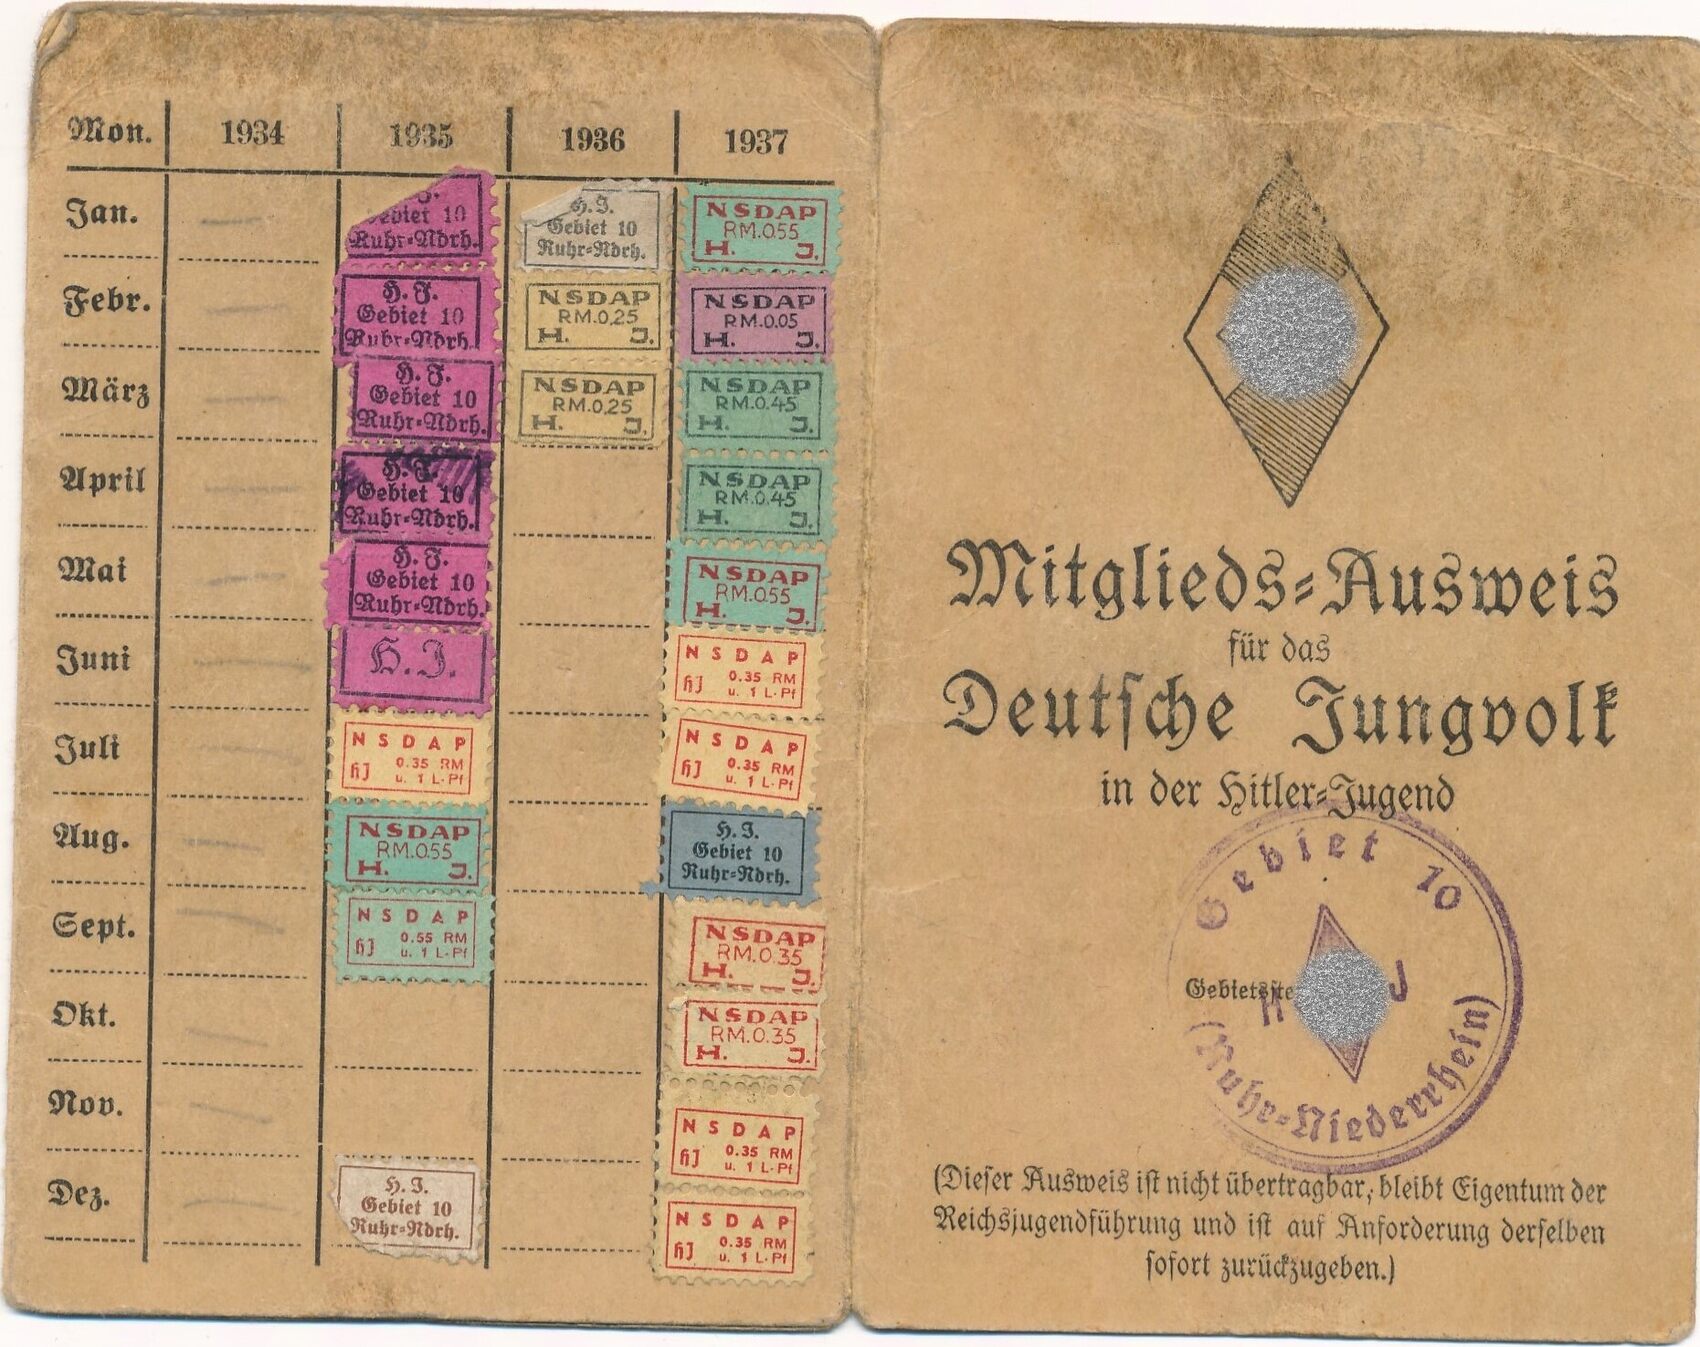 Mon. 1934 1935 1936 1937
Jan.
H. J.
Gebiet 10
Ruhr=Ndrh.
NSDAP
RM.0.55
H. J.
Febr.
H. J.
Gebiet 10
Ruhr=Ndrh.
NSDAP
RM.0.25
H. J.
NSDAP
RM.0.05
H. J.
März
H. J.
Gebiet 10
Ruhr=Ndrh.
NSDAP
RM.0.25
H. J.
NSDAP
RM.0.45
H. J.
April
H. J.
Gebiet 10
Ruhr=Ndrh.
NSDAP
RM.0.45
H. J.
Mai
H. J.
Gebiet 10
Ruhr=Ndrh.
NSDAP
RM.0.55
H. J.
Juni
H. J.
NSDAP
HJ 0.35 RM
u. 1 L-Pf
Juli
NSDAP
HJ 0.35 RM
u. 1 L-Pf
NSDAP
HJ 0.35 RM
u. 1 L-Pf
Aug.
NSDAP
RM.0.55
H. J.
H. J.
Gebiet 10
Ruhr=Ndrh.
Sept.
NSDAP
HJ 0.55 RM
u. 1 L-Pf
NSDAP
RM.0.35
H. J.
Okt.
NSDAP
RM.0.35
H. J.
Nov.
NSDAP
HJ 0.35 RM
u. 1 L-Pf
Dez.
H. J.
Gebiet 10
Ruhr=Ndrh.
NSDAP
HJ 0.35 RM
u. 1 L-Pf
Mitglieds=Ausweis
für das
Deutsche Jungvolk
in der Hitler=Jugend
Gebiet 10
H J
(Ruhr=Niederrhein)
(Dieser Ausweis ist nicht übertragbar, bleibt Eigentum der
Reichsjugendführung und ist auf Anforderung derselben
sofort zurückzugeben.)